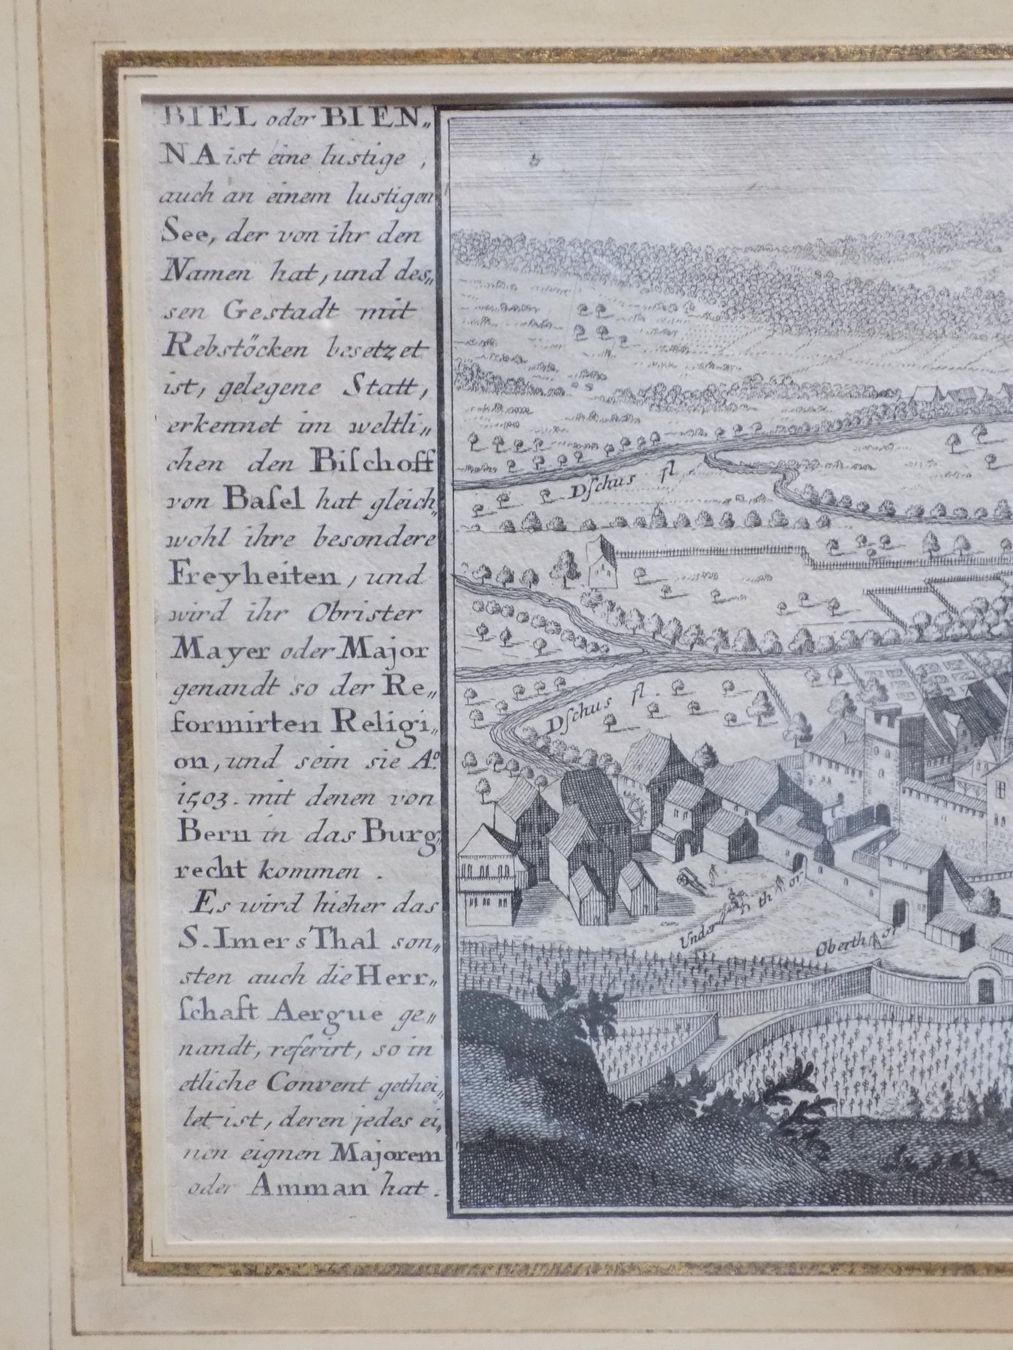 BIEL oder BIEN„
NA ist eine lustige ,
auch an einem lustigen
See, der von ihr den
Namen hat, und des„
sen Gestadt mit
Rebstöcken besetzet
ist, gelegene Statt,
erkennet im weltli„
chen den Biſchoff
von Baſel hat gleich„
wohl ihre besondere
Freyheiten, und
wird ihr Obrister
Mayer oder Major
genandt so der Re„
formirten Religi„
on, und sein sie Aº.
1503. mit denen von
Bern in das Burg„
recht kommen .
Es wird hieher das
S. Imers Thal son„
sten auch die Herr„
ſchaft Aergue ge„
nandt, referirt, so in
etliche Convent gethei„
let ist, deren jedes ei„
nen eignen Majorem
oder Amman hat.
Dſchus fl.
Dſchus fl.
Under thor
Oberthor